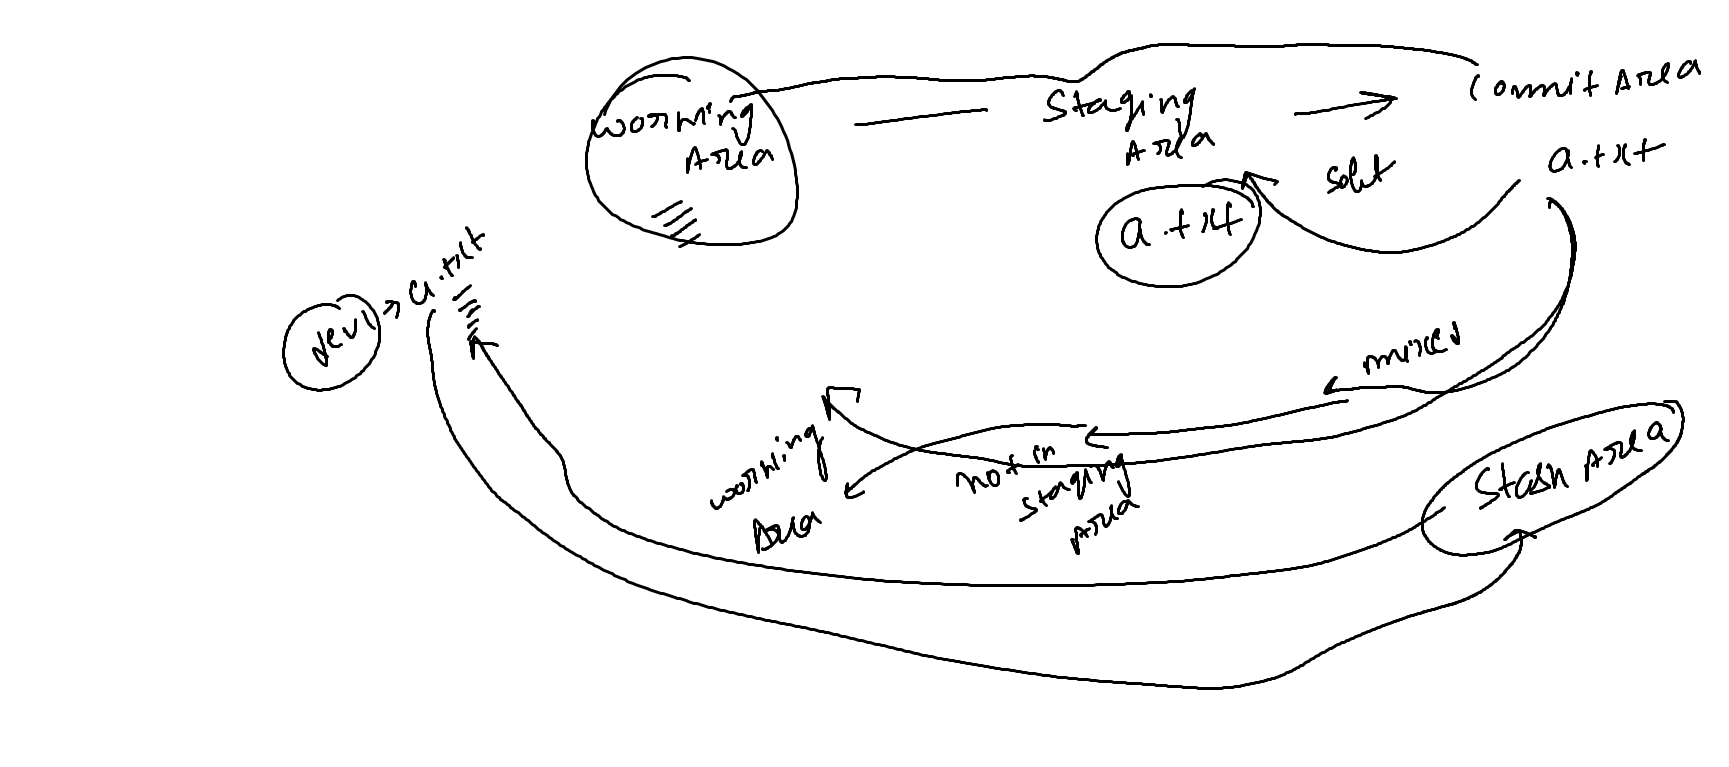 working
Area
Staging
Area
Commit Area
a.txt
soft
a.txt
a.txt
dev1
mixed
working
Area
not in
staging
Area
Stash Area